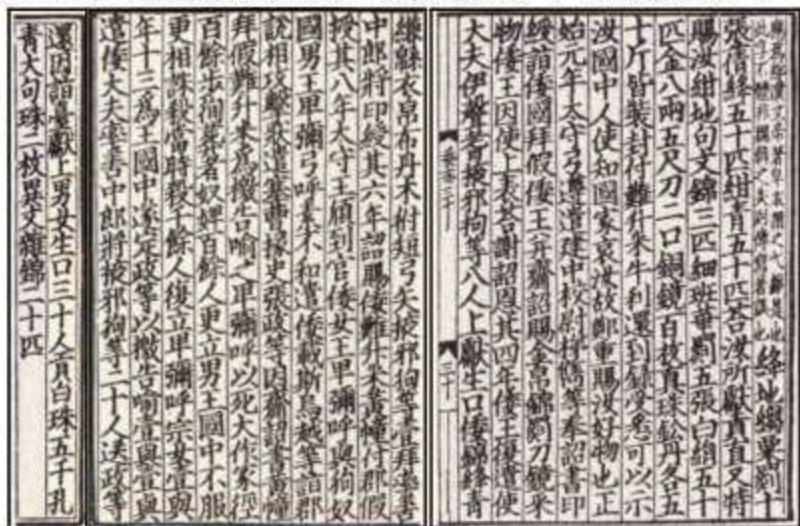 應為綈漢文帝著皁衣謂之弋綈是也
此字不體非魏朝之失則傳寫者誤也
絳地縐粟罽十
張蒨絳五十匹紺青五十匹荅汝所獻貢直又特
賜汝紺地句文錦三匹細班華罽五張白絹五十
匹金八兩五尺刀二口銅鏡百枚真珠鈆丹各五
十斤皆裝封付難升米牛利還到錄受悉可以示
汝國中人使知國家哀汝故鄭重賜汝好物也正
始元年太守弓遵遣建中校尉梯儁等奉詔書印
綬詣倭國拜假倭王并齎詔賜金帛錦罽刀鏡采
物倭王因使上表荅謝詔恩其四年倭王復遣使
大夫伊聲耆掖邪狗等八人上獻生口倭錦絳青
三十
縑緜衣帛布丹木𤝔短弓矢掖邪狗等壹拜率善
中郎將印綬其六年詔賜倭難升米黃幢付郡假
授其八年太守王頎到官倭女王卑彌呼與狗奴
國男王卑彌弓呼素不和遣倭載斯烏越等詣郡
說相攻擊狀遣塞曹掾史張政等因齎詔書黃幢
拜假難升米為檄告喻之卑彌呼以死大作冢徑
百餘步狥葬者奴婢百餘人更立男王國中不服
更相誅殺當時殺千餘人復立卑彌呼宗女壹與
年十三為王國中遂定政等以檄告喻壹與壹與
遣倭大夫率善中郎將掖邪狗等二十人送政等
還因詣臺獻上男女生口三十人貢白珠五千孔
青大句珠二枚異文雜錦二十匹